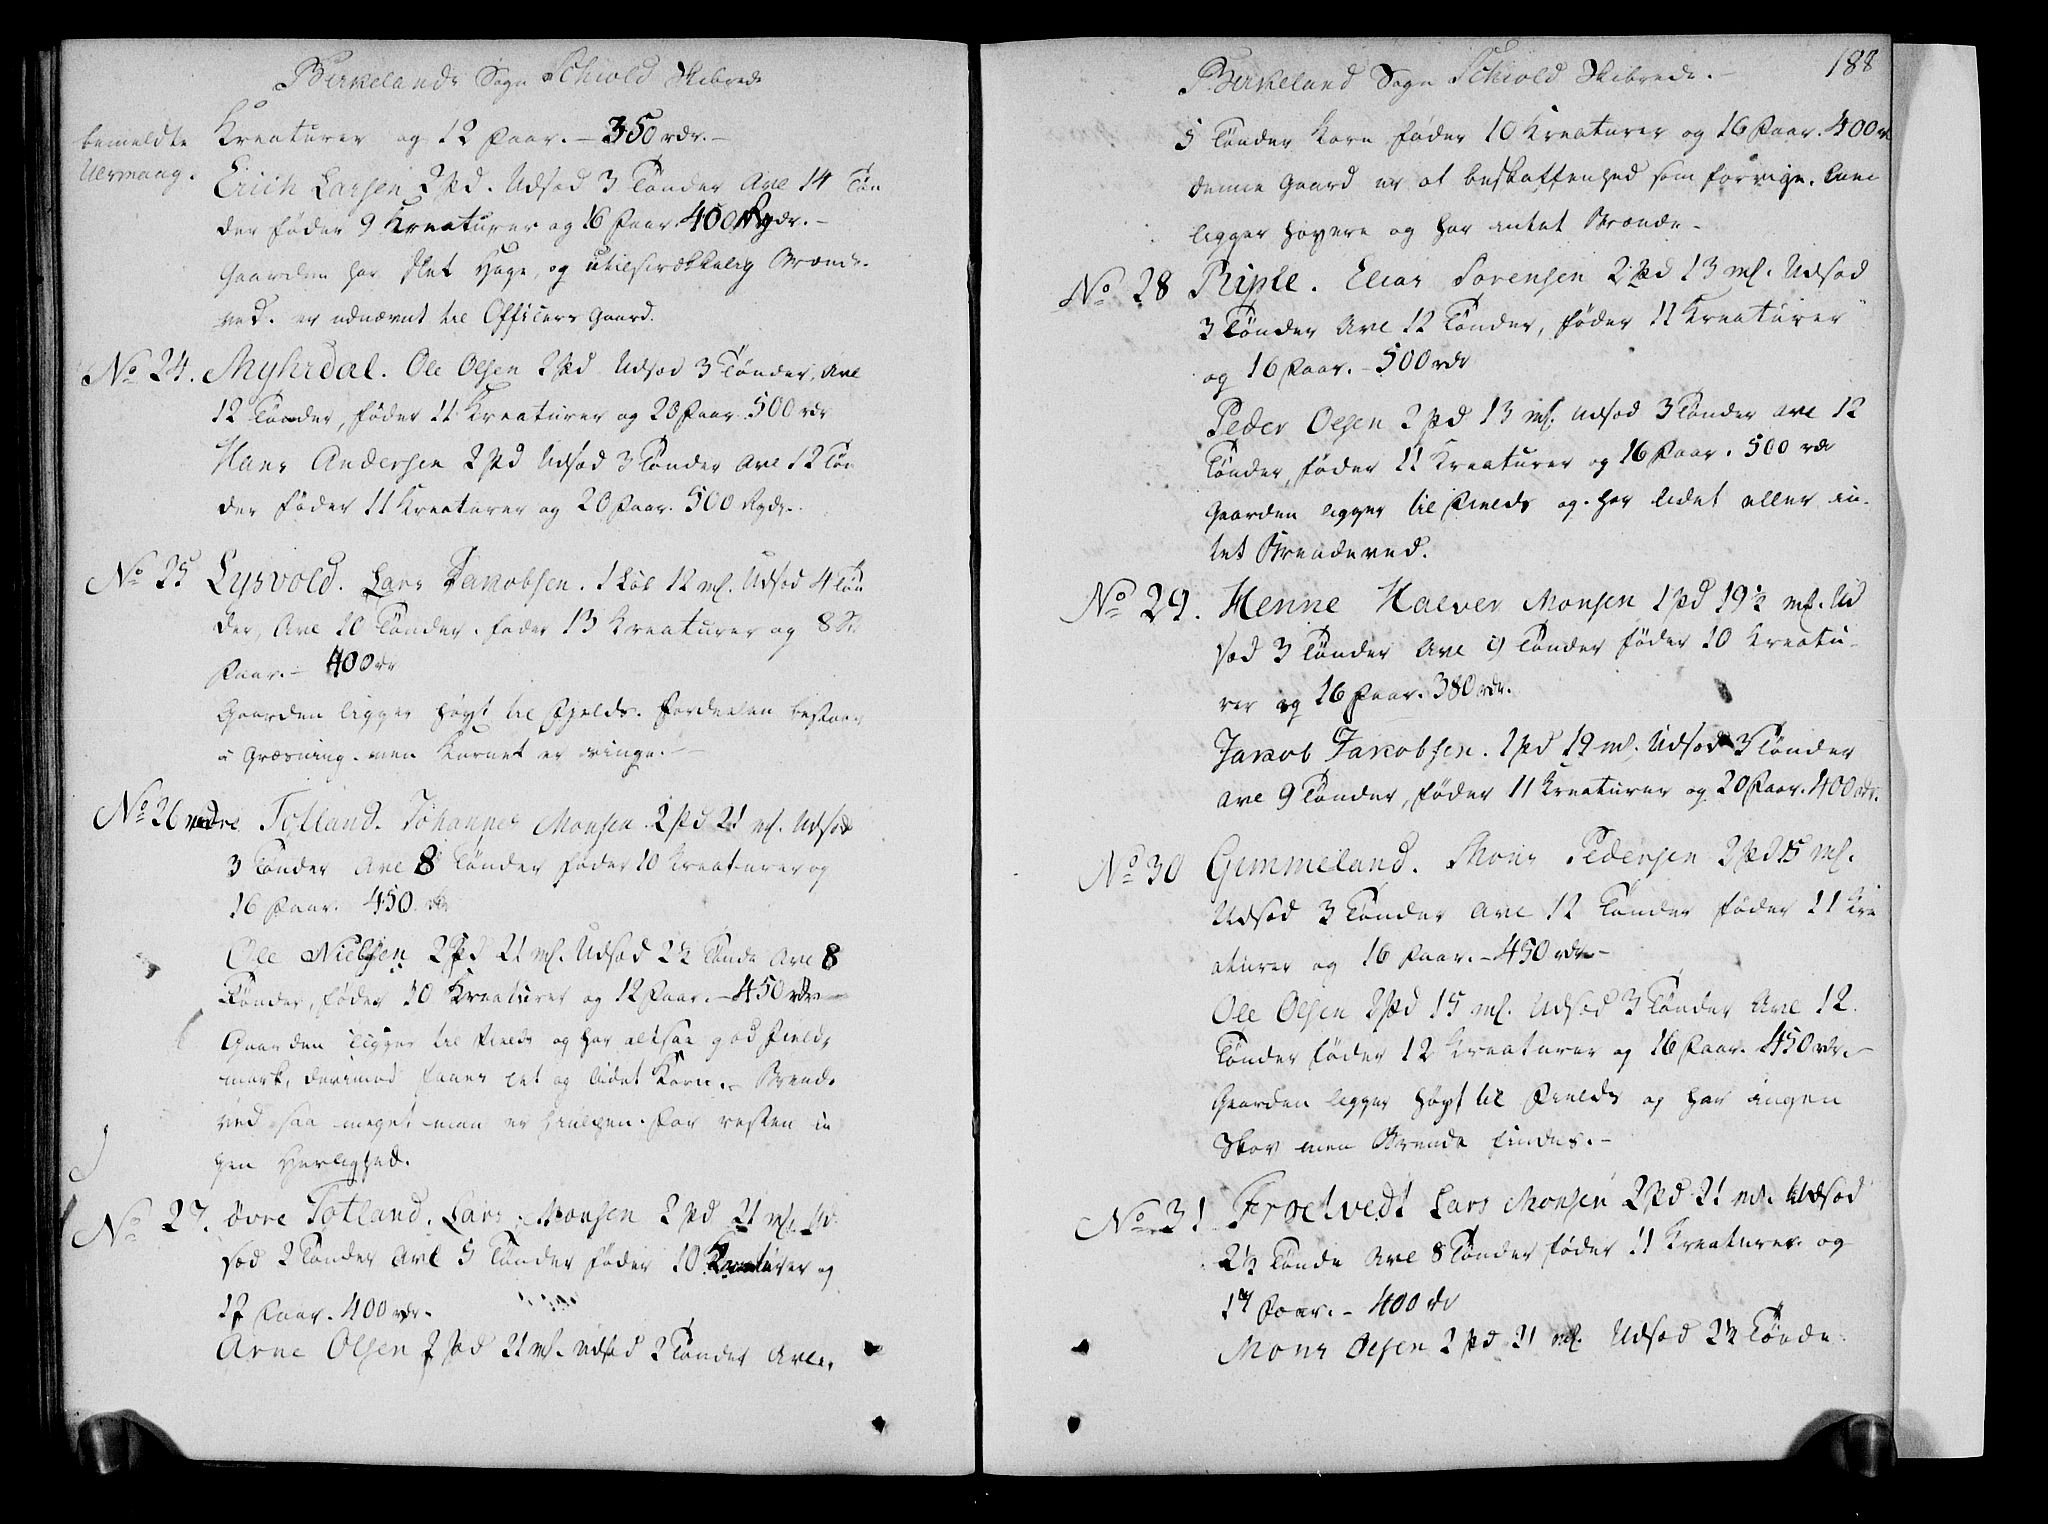 Birkelands Sogn Schiold Skibrede
bemeldte Kreaturer og 12 Faar. – 350 rdr. –
Ulvmang.
Erich Larsen 2 pd. Udsæd 3 Tønder Avl 14 Tøn
der føder 9 Kreaturer og 16 Faar 400 Rgdr. –
Gaarden har slet Hage, og utilstrækkelig Brænde-
ved. er udnævnt til Officers Gaard.
No 24. Myhrdal. Ole Olsen 2 pd Udsæd 3 Tønder, Avl
12 Tønder, føder 11 Kreaturer og 20 Faar 500 rdr
Hans Andersen 2 pd Udsæd 3 Tønder Avl 12 Tøn
der føder 11 Kreaturer og 20 Faar. 500 Rgdr.
No 25 Lysvold. Lars Jakobsen. 1 Løb 12 mk. Udsæd 4 Tøn
der, Avl 20 Tønder. føder 13 Kreaturer og 8 St:
Faar. – 400 rdr
Gaarden ligger høyt til Fjelds. Fordeelen bestaar
i Græsning. men Kornet er ringe. –
No 26 nedre Totland. Johannes Monsen 2 pd 21 mk. Udsæd
3 Tønder Avl 8 Tønder føder 10 Kreaturer og
16 Faar. 450 rdr
Ole Nielsen 2 pd 21 mk. Udsæd 2½ Tønde Avl 8
Tønder, føder 10 Kreaturer og 12 Faar. – 450 rdr –
Gaarden ligger til Fields og har altsaa god Field,
mark, derimod faaer let og lidet Korn. – Brende
ved saa meget man er hiulpen. for resten in
gen Herlighed.
No 27. øvre Totland. Lars Monsen 2 pd 21 mk. Ud
sæd 2 Tønder Avl 5 Tønder føder 10 Kreaturer og
17 Faar. 400 rdr.
Arne Olsen 2 pd 21 mk. udsæd 2 Tønder Avle,
188
Birkeland Sogn Schiold Skibrede. –
5 Tønder Korn føder 10 Kreaturer og 16 Faar. 400 rdr
denne Gaard er af beskaffenhed som forrige. kun
ligger høyere og har intet Brænde –
No 28 Riple. Elias Sørensen 2 pd 13 mk. Udsæd
3 Tønder Avl 12 Tønder, føder 11 Kreaturer
og 16 Faar. – 500 rdr
Peder Olsen 2 pd 13 mk. udsæd 3 Tønder avl 12
Tønder, føder 11 Kreaturer og 16 Faar. 500 rdr
Gaarden ligger til Fields og har lidet eller in-
tet Brendeved.
No 29. Henne Halver Monsen 1 pd 19½ mk. Ud
sæd 3 Tønder Avl 9 Tønder føder 10 Kreatu-
rer og 16 Faar. 380 rdr.
Jakob Jakobsen. 1 pd 19 mk. Udsæd 3 Tønder
avl 9 Tønder, føder 11 Kreaturer og 20 Faar. 400 rdr.
No 30 Gimmeland. Mons Pedersen 2 pd 15 mk.
Udsæd 3 Tønder Avl 12 Tønder føder 11 Kre
aturer og 16 Faar. – 450 rdr –
Ole Olsen 2 pd 15 mk. Udsæd 3 Tønder Avl 12
Tønder føder 12 Kreaturer og 16 Faar. 450 rdr. –
Gaarden ligger høyt til Fields og har ingen
Skov men Brende findes. –
No 31 Froetvedt Lars Monsen 2 pd 21 mk. Udsæd
2½ Tønde Avl 8 Tønder føder 11 Kreaturer og
14 Faar. – 400 rdr
Mons Olsen 2 pd 21 mk. Udsæd 2½ Tønde